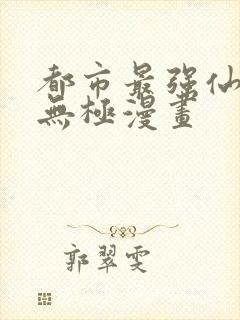 都市最强仙
無極漫畫
郭翠雯